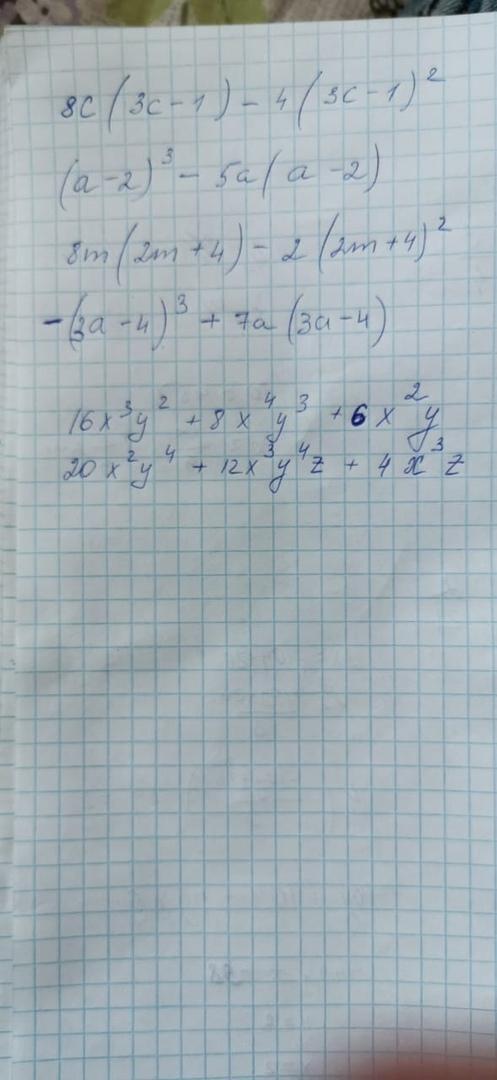 8c(3c-1)-4(3c-1)²
(a-2)³-5a(a-2)
8m(2m+4)-2(2m+4)²
-(3a-4)³+7a(3a-4)
16x³y²+8x⁴y³+6x²y
20x²y⁴+12x³y⁴z+4x³z